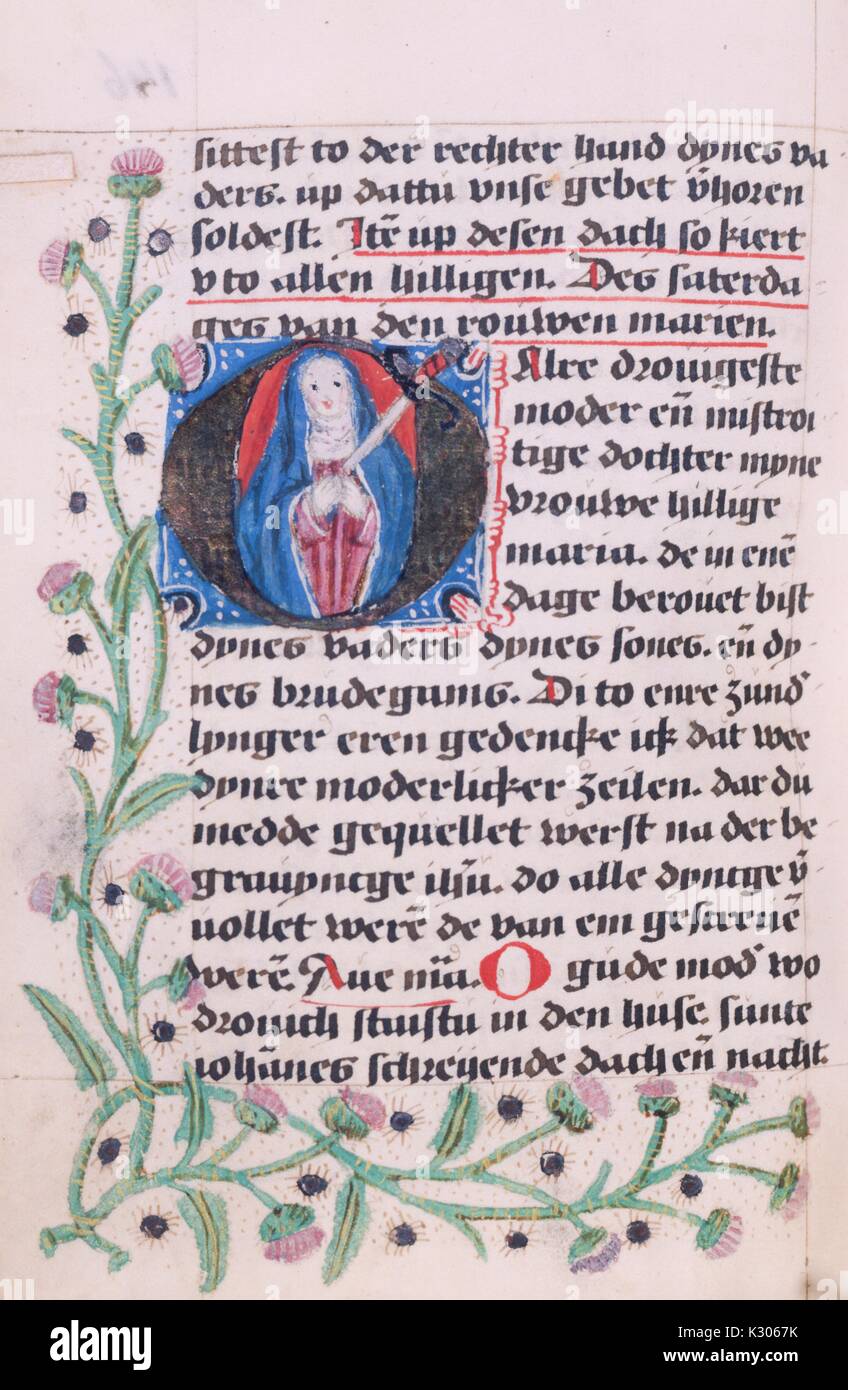 sittest to der rechter hand dynes va
ders. up dattu vnse gebet v̄horen
soldest. Itē up desen dach so kiert
v to allen hilligen. Des saterda
ges van den rouwen marien.
O Alre drouigeste
moder en̄ mistroi
tige dochter myne
vrouwe hillige
maria. de in enē
dage berouet bist
dynes vaders dynes sones. en̄ dy
nes brudegums. Di to enre zund
lynger eren gedencke ick dat wee
dynre moderlicker zeilen. dar du
medde gequellet werst na der be
grauyncge ihū. do alle dyncge v̄
uollet werē de van em gescreuē
werē. Aue m̄a. O gude mod wo
drouich stuistu in den huse. sunte
iohānes schreyende dach en̄ nacht.
alamy
Image ID: K3067K
www.alamy.com